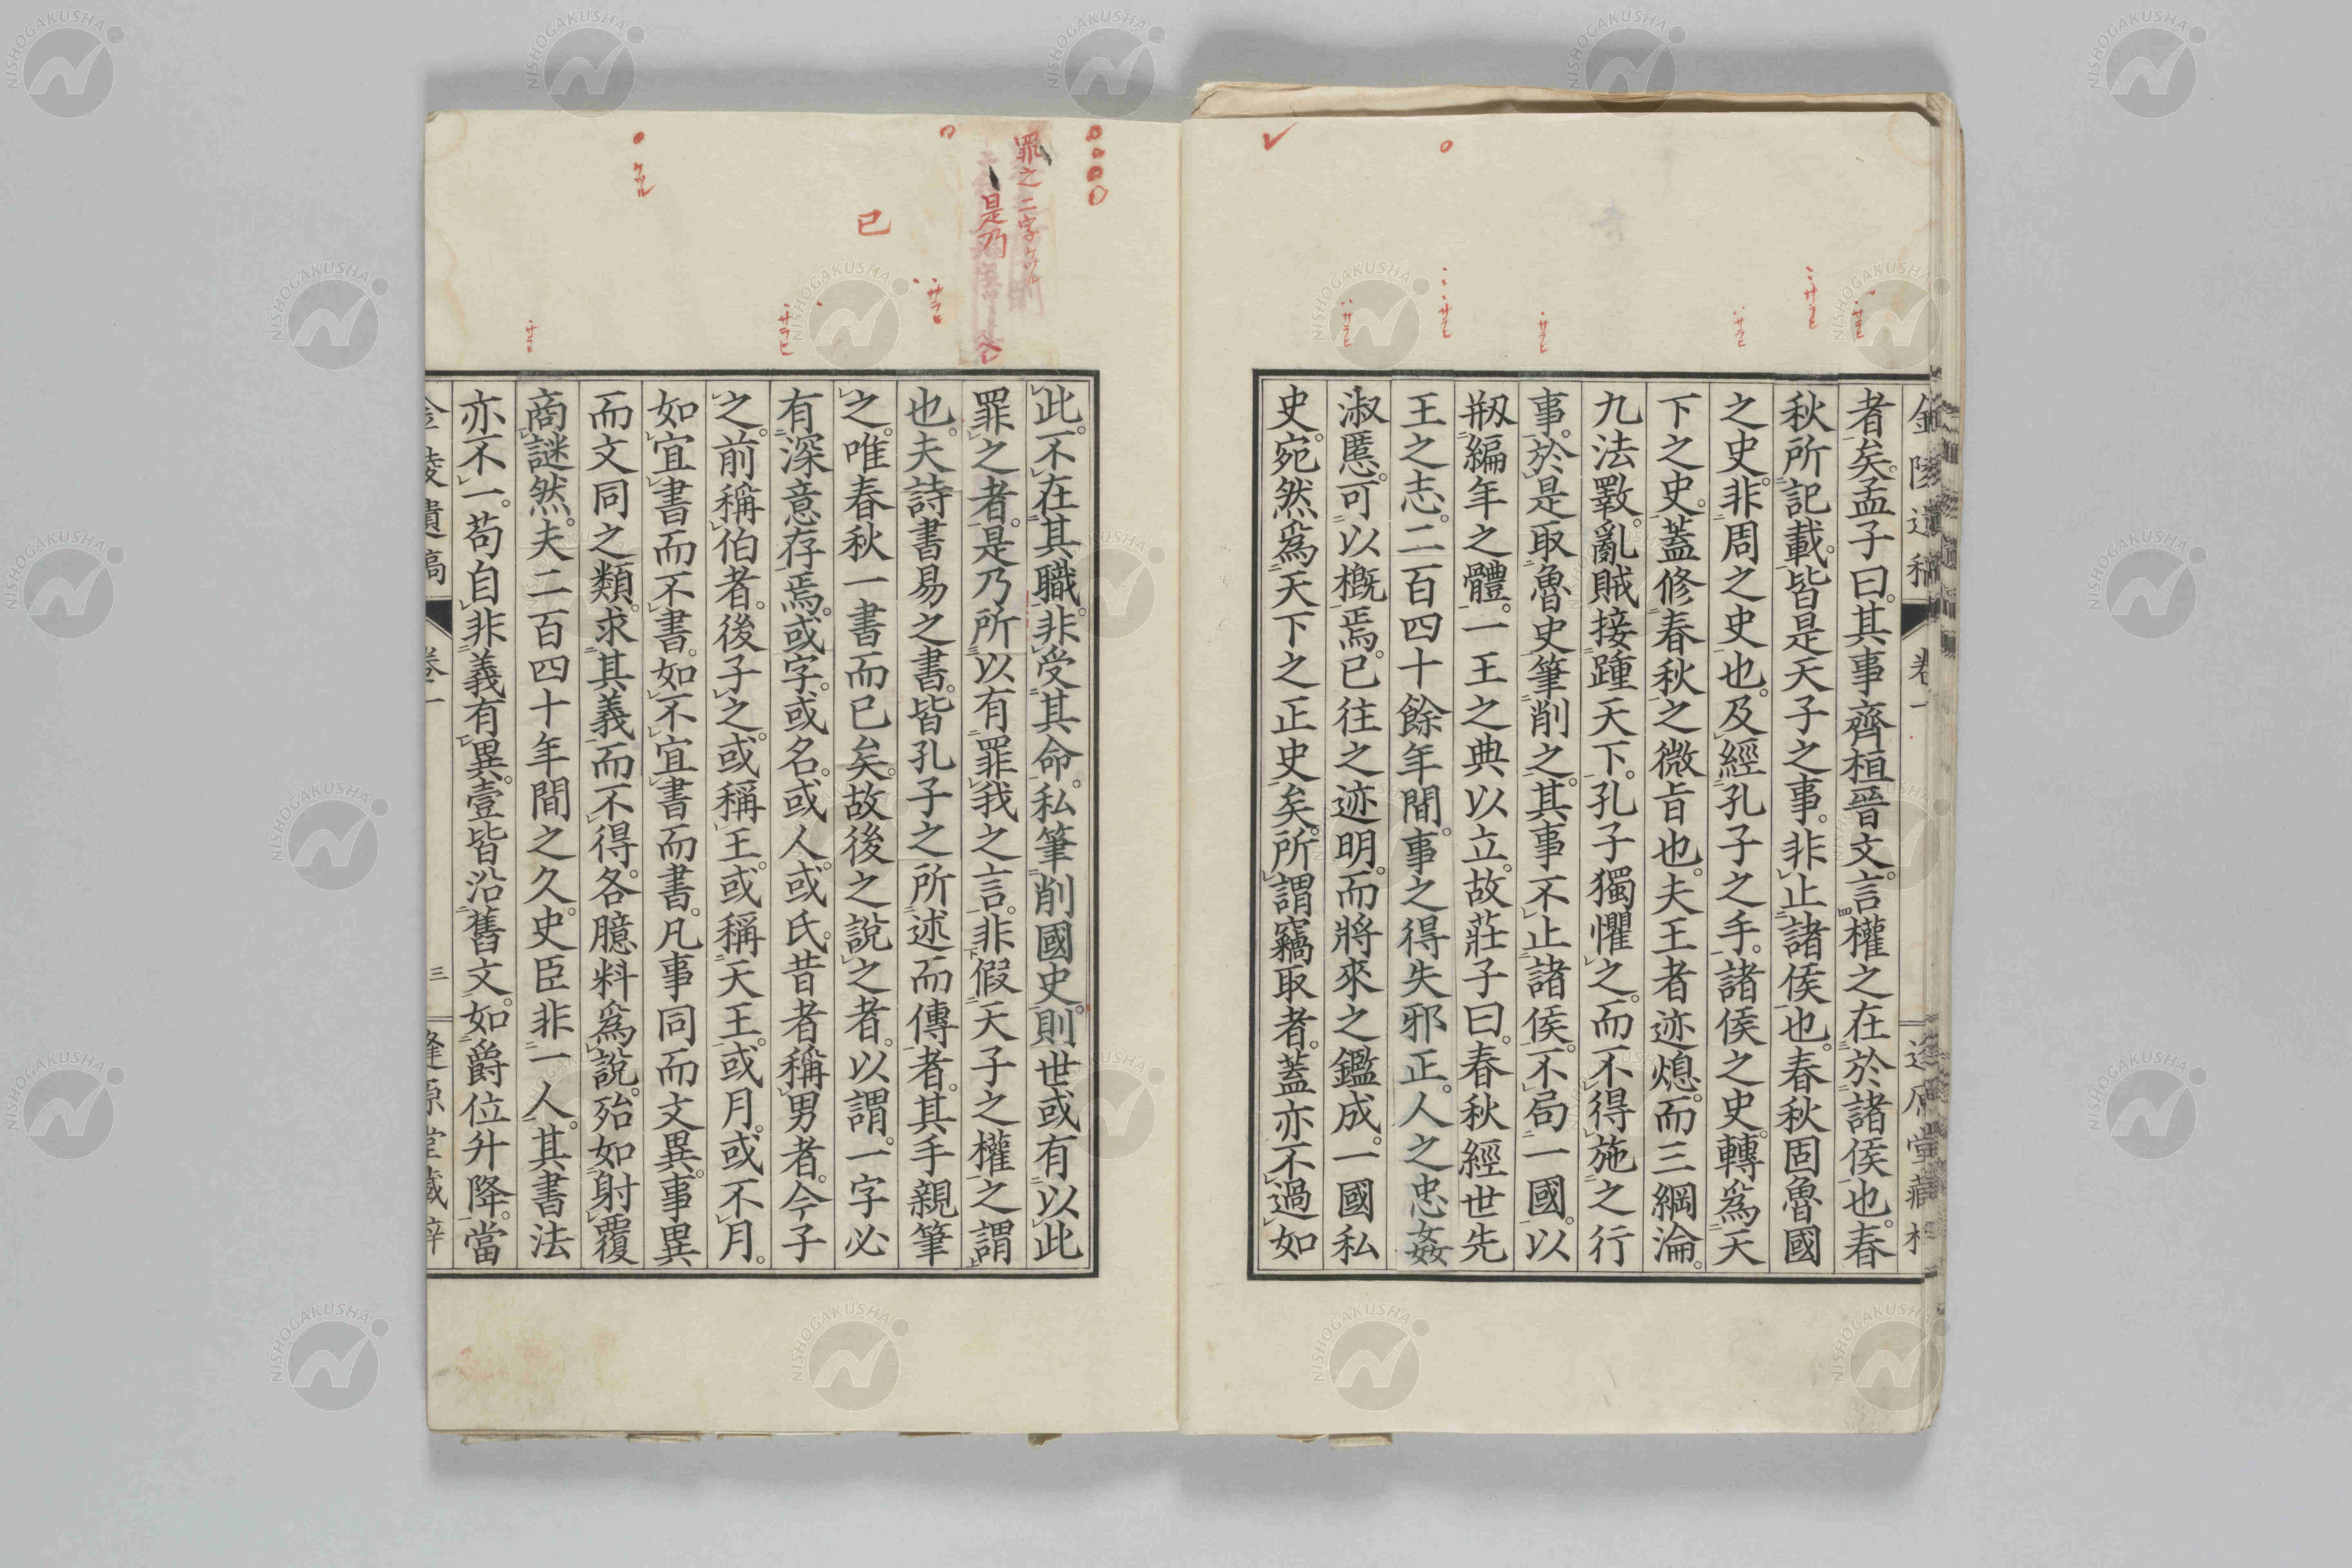 者矣。孟子曰。其事齊桓晉文。言權之在於諸侯也。春
秋所記載。皆是天子之事。非止諸侯也。春秋固魯國
之史。非周之史也。及經孔子之手。諸侯之史。轉爲天
下之史。蓋修春秋之微旨也。夫王者迹熄。而三綱淪。
九法斁。亂賊接踵天下。孔子獨懼之。而不得施之行
事。於是取魯史筆削之。其事不止諸侯。不局一國。以
剏編年之體。一王之典以立。故莊子曰。春秋經世先
王之志。二百四十餘年間。事之得失邪正。人之忠姦
淑慝。可以槪焉。已往之迹明。而將來之鑑成。一國私
史。宛然爲天下之正史矣。所謂竊取者。蓋亦不過如
罪之二字ケツル
是乃
已
ケツル
此。不在其職。非受其命。私筆削國史。則世或有以此
罪之者。是乃所以有罪我之言。非假天子之權之謂
也。夫詩書易之書。皆孔子之所述而傳者。其手親筆
之。唯春秋一書而已矣。故後之說之者。以謂。一字必
有深意存焉。或字。或名。或人。或氏。昔者稱男者。今子
之。前稱伯者。後子之。或稱王。或稱天王。或月。或不月。
如宜書而不書。如不宜書而書。凡事同而文異。事異
而文同之類。求其義而不得。各臆料爲說。殆如射覆
商謎然。夫二百四十年間之久。史臣非一人。其書法
亦不一。苟自非義有異。壹皆沿舊文。如爵位升降。當
三